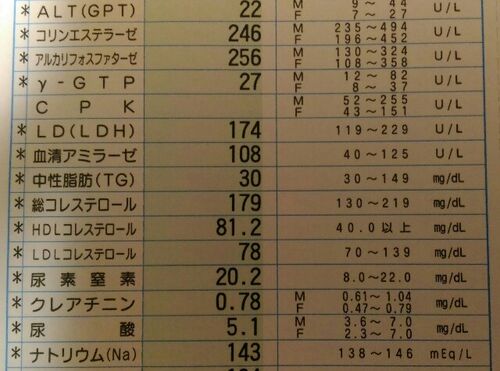 * ALT(GPT) 22 M 9 ～ 44 U/L
F 7 ～ 27
* コリンエステラーゼ 246 M 235～494 U/L
F 196～452
* アルカリフォスファターゼ 256 M 130～324 U/L
F 108～358
* γ-GTP 27 M 12 ～ 82 U/L
F 8 ～ 37
CPK M 52～255 U/L
F 43～151
* LD(LDH) 174 119～229 U/L
* 血清アミラーゼ 108 40～125 U/L
* 中性脂肪(TG) 30 30～149 mg/dL
* 総コレステロール 179 130～219 mg/dL
* HDLコレステロール 81.2 40.0 以上 mg/dL
* LDLコレステロール 78 70～139 mg/dL
* 尿素窒素 20.2 8.0～22.0 mg/dL
* クレアチニン 0.78 M 0.61～ 1.04 mg/dL
F 0.47～ 0.79
* 尿酸 5.1 M 3.6～ 7.0 mg/dL
F 2.3～ 7.0
* ナトリウム(Na) 143 138～146 mEq/L